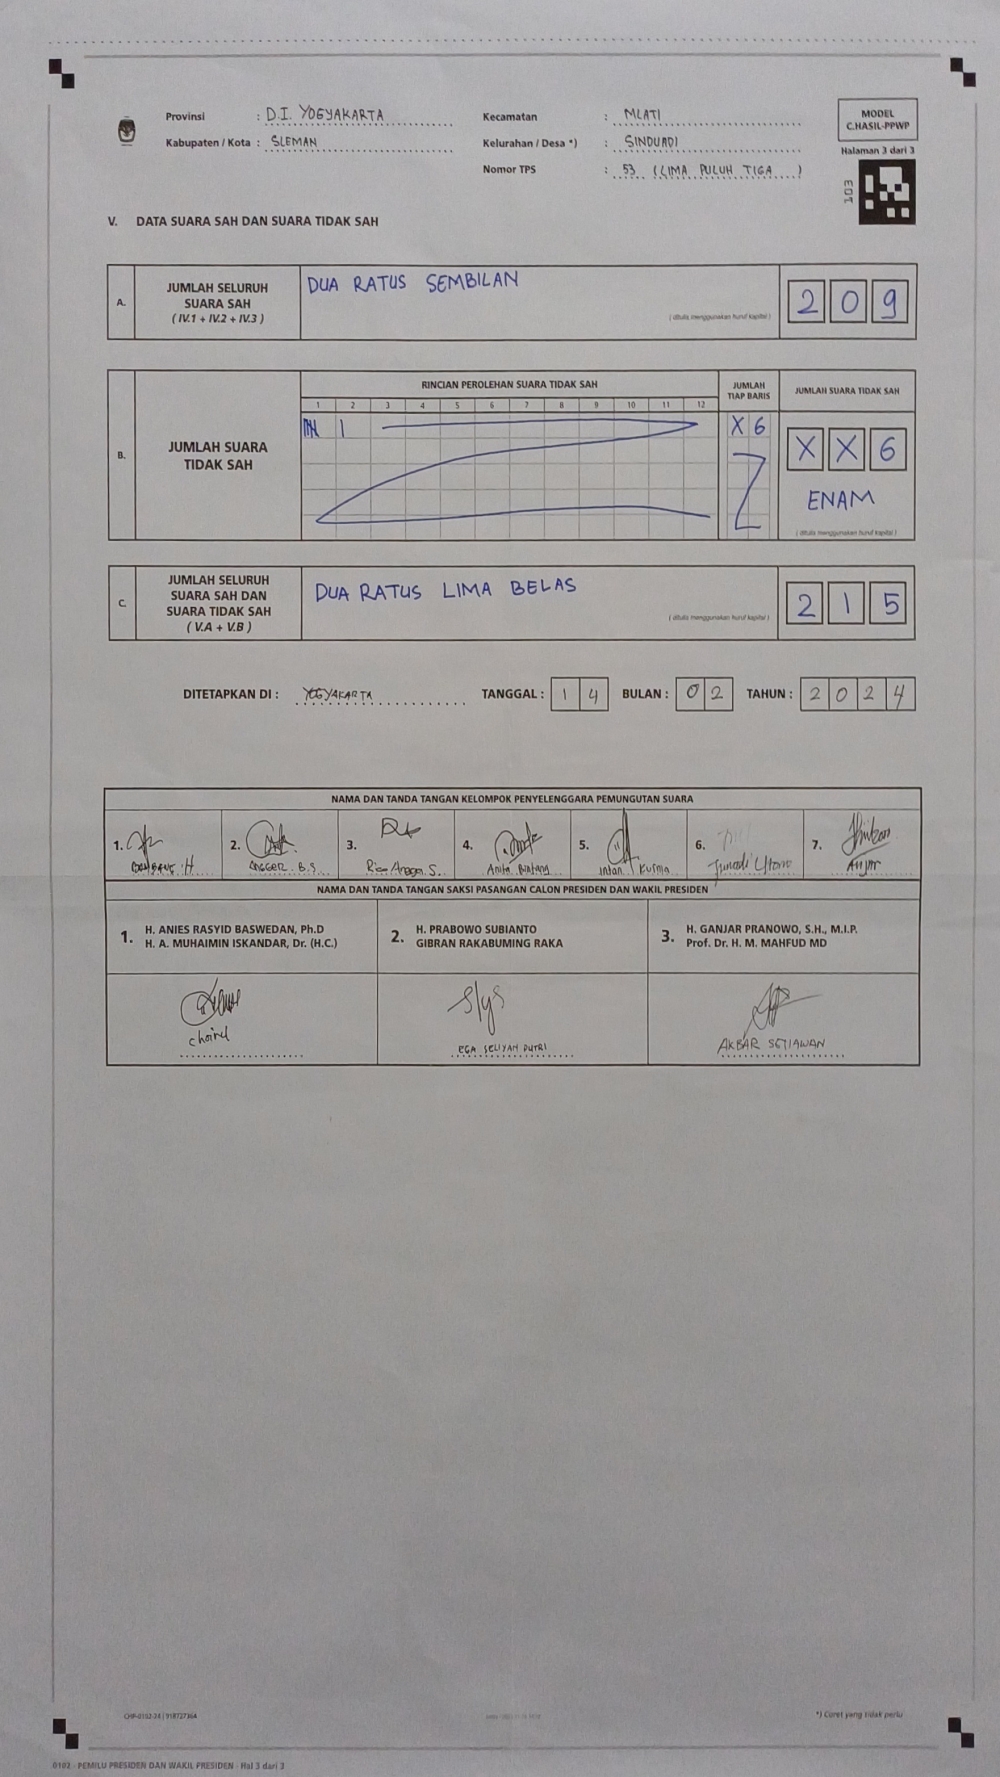 Provinsi : D.I. YOGYAKARTA
Kecamatan : MLATI
MODEL
C.HASIL-PPWP
Kabupaten / Kota : SLEMAN
Kelurahan / Desa *) : SINDUADI
Halaman 3 dari 3
Nomor TPS : 53 (LIMA PULUH TIGA )
103
V. DATA SUARA SAH DAN SUARA TIDAK SAH
A.
JUMLAH SELURUH
SUARA SAH
( IV.1 + IV.2 + IV.3 )
DUA RATUS SEMBILAN
( ditulis menggunakan huruf kapital )
2 0 9
B.
JUMLAH SUARA
TIDAK SAH
RINCIAN PEROLEHAN SUARA TIDAK SAH
1 2 3 4 5 6 7 8 9 10 11 12
JUMLAH
TIAP BARIS
X 6
JUMLAH SUARA TIDAK SAH
X X 6
ENAM
( ditulis menggunakan huruf kapital )
C.
JUMLAH SELURUH
SUARA SAH DAN
SUARA TIDAK SAH
( V.A + V.B )
DUA RATUS LIMA BELAS
( ditulis menggunakan huruf kapital )
2 1 5
DITETAPKAN DI : YOGYAKARTA TANGGAL : 1 4 BULAN : 0 2 TAHUN : 2 0 2 4
NAMA DAN TANDA TANGAN KELOMPOK PENYELENGGARA PEMUNGUTAN SUARA
1. 2. 3. 4. 5. 6. 7.
B.S. Angga S. Anita Bintang Intan Kusma Junadi Utomo
NAMA DAN TANDA TANGAN SAKSI PASANGAN CALON PRESIDEN DAN WAKIL PRESIDEN
1. H. ANIES RASYID BASWEDAN, Ph.D
H. A. MUHAIMIN ISKANDAR, Dr. (H.C.)
2. H. PRABOWO SUBIANTO
GIBRAN RAKABUMING RAKA
3. H. GANJAR PRANOWO, S.H., M.I.P.
Prof. Dr. H. M. MAHFUD MD
EGA SELIYAN PUTRI
AKBAR SETIAWAN
*) Coret yang tidak perlu
0102 - PEMILU PRESIDEN DAN WAKIL PRESIDEN - Hal 3 dari 3